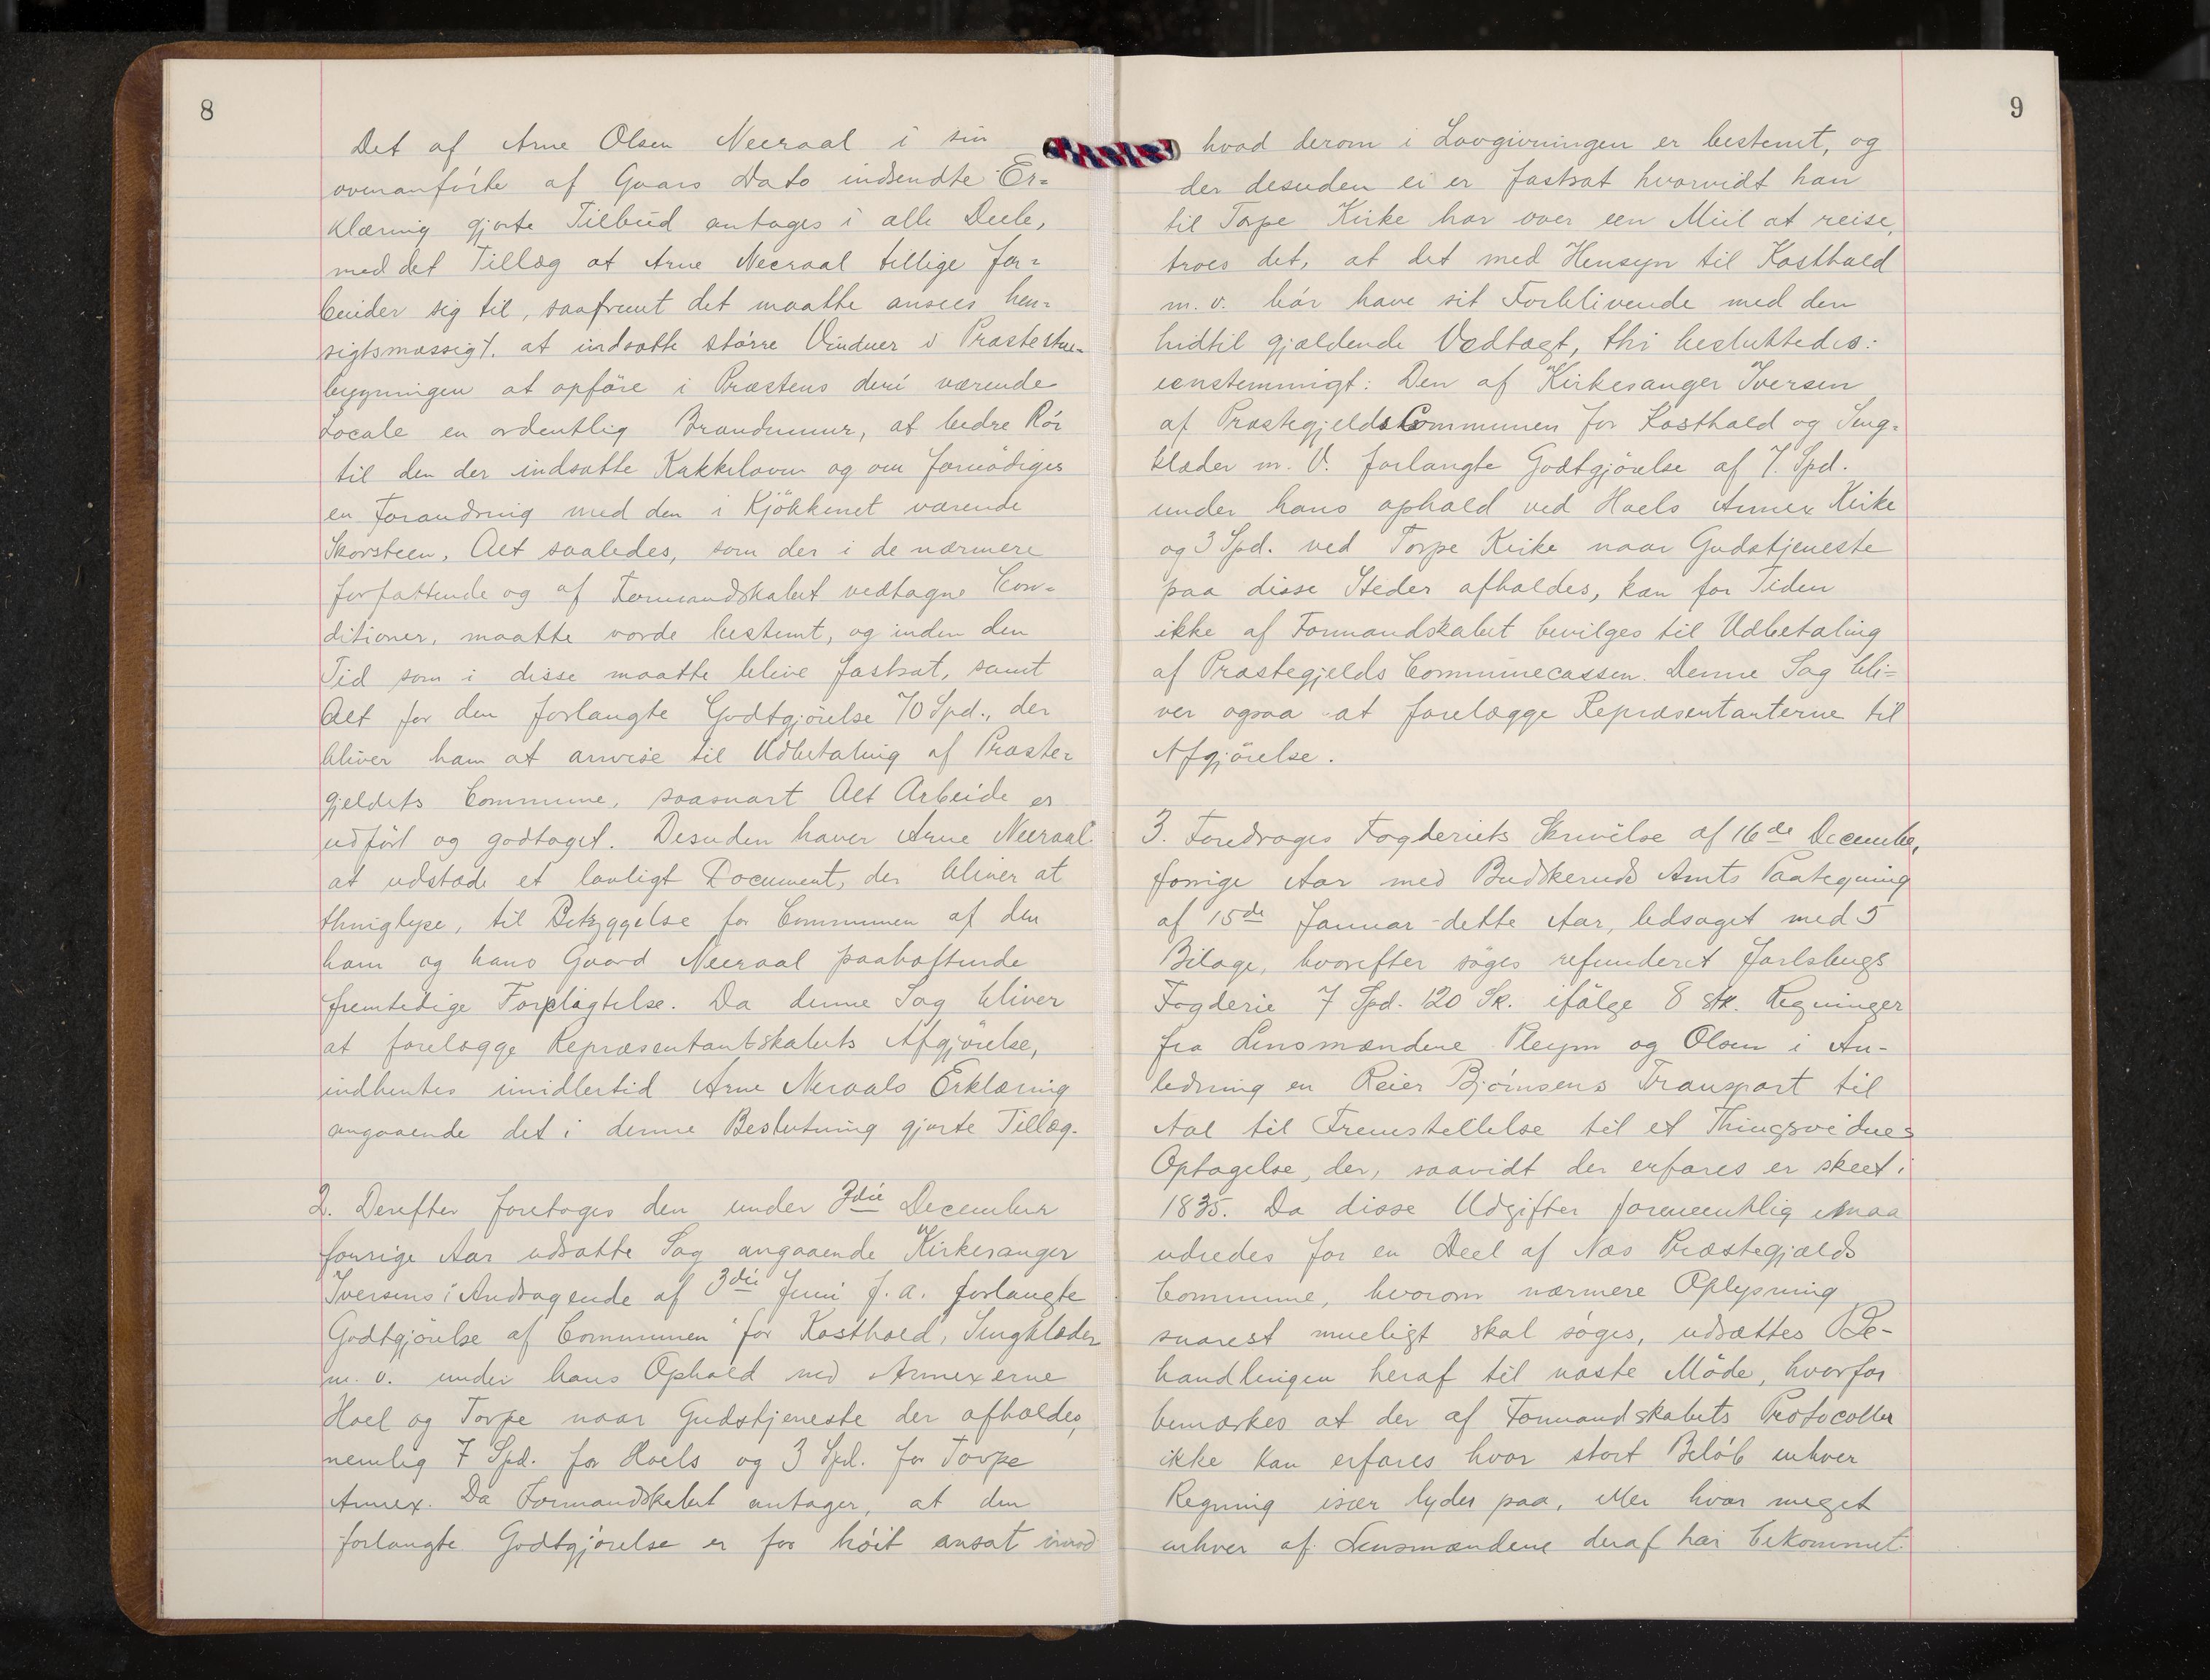 8
Det af Arne Olsen Neeraal i sin
ovenanførte af Gaars Dato indsendte Er=
klæring gjorte Tilbud antages i alle Deele,
med det Tillæg at Arne Neeraal tillige for=
binder sig til, saafremt det maatte ansees hen=
sigtsmæssigt, at indsætte større Vinduer i Præstestue=
bygningen at opføre i Præstens deri værende
Locale en ordentlig Brandmuur, at bedre Rør
til den der indsatte Kakkelovn og om fornødiges
en Forandring med den i Kjøkkenet værende
Skorsteen, Alt saaledes, som der i de nærmere
forfattende og af Formandskabet vedtagne Con=
ditioner, maatte vorde bestemt, og inden den
Tid som i disse maatte blive fastsat, samt
Alt for den forlangte Godtgjørelse 70 Spd., der
bliver ham at anvise til Udbetaling af Præste=
gjeldets Commune, saasnart Alt Arbeide er
udført og godtaget. Desuden haver Arne Neeraal
at udstæde et lovligt Document, der bliver at
thinglyse, til Betryggelse for Communen af den
ham og hans Gaard Neeraal paahæftende
fremtidige Forpligtelse. Da denne Sag bliver
at forelægge Repræsentantskabets Afgjørelse,
indhentes imidlertid Arne Neraals Erklæring
angaaende det i denne Beslutning gjorte Tillæg.
2. Derefter foretages den under 3die December
forrige Aar udsatte Sag angaaende Kirkesanger
Iversens i Andragende af 3die Juni f. a. forlangte
Godtgjørelse af Communen for Kosthold, Sengklæder
m. v. under hans Ophold ved Annexerne
Hoel og Torpe naar Gudstjeneste der afholdes,
nemlig 7 Spd. for Hoels og 3 Spd. for Torpe
Annex. Da Formandskabet antager, at den
forlangte Godtgjørelse er for høit ansat imod
9
hvad derom i Lovgivningen er bestemt, og
der desuden ei er fastsat hvorvidt han
til Torpe Kirke har over een Miil at reise,
troes det, at det med Hensyn til Kosthold
m. v. bør have sit Forblivende med den
hidtil gjældende Vedtægt, thi besluttedes:
eenstemmigt: Den af Kirkesanger Iversen
af PræstegjeldsCommunen for Kosthold og Seng=
klæder m. V. forlangte Godtgjørelse af 7. Spd.
under hans ophold ved Hoels Annex Kirke
og 3 Spd. ved Torpe Kirke naar Gudstjeneste
paa disse Steder afholdes, kan for Tiden
ikke af Formandskabet bevilges til Udbetaling
af Præstegjelds Communecassen. Denne Sag bli=
ver ogsaa at forelægge Repræsentanterne til
Afgjørelse.
3. Foredroges Fogderiets Skrivelse af 16de Decembe,
forrige Aar med Budskeruds Amts Paategning
af 15de Januar dette Aar, ledsaget med 5
Bilage, hvorefter søges refunderet Jarlsbergs
Fogderie 7 Spd. 120 Sk. ifølge 8 stk. Regninger
fra Lensmændene Pleym og Olsen i An-
ledning en Reier Bjørnsens Transport til
Aal til Fremstellelse til et Thingsvidnes
Optagelse, der, saavidt der erfares er skeet i
1835. Da disse Udgifter formeentlig maa
udredes for en Deel af Næs Præstegjælds
Commune, hvorom nærmere Oplysning
snarest mueligt skal søges, udsættes Be-
handlingen heraf til næste Møde, hvorfor
bemærkes at der af Formandskabets Protocoller
ikke kan erfares hvor stort Beløb enhver
Regning især lyder paa, eller hvor meget
enhver af Lensmændene deraf har bekommet.